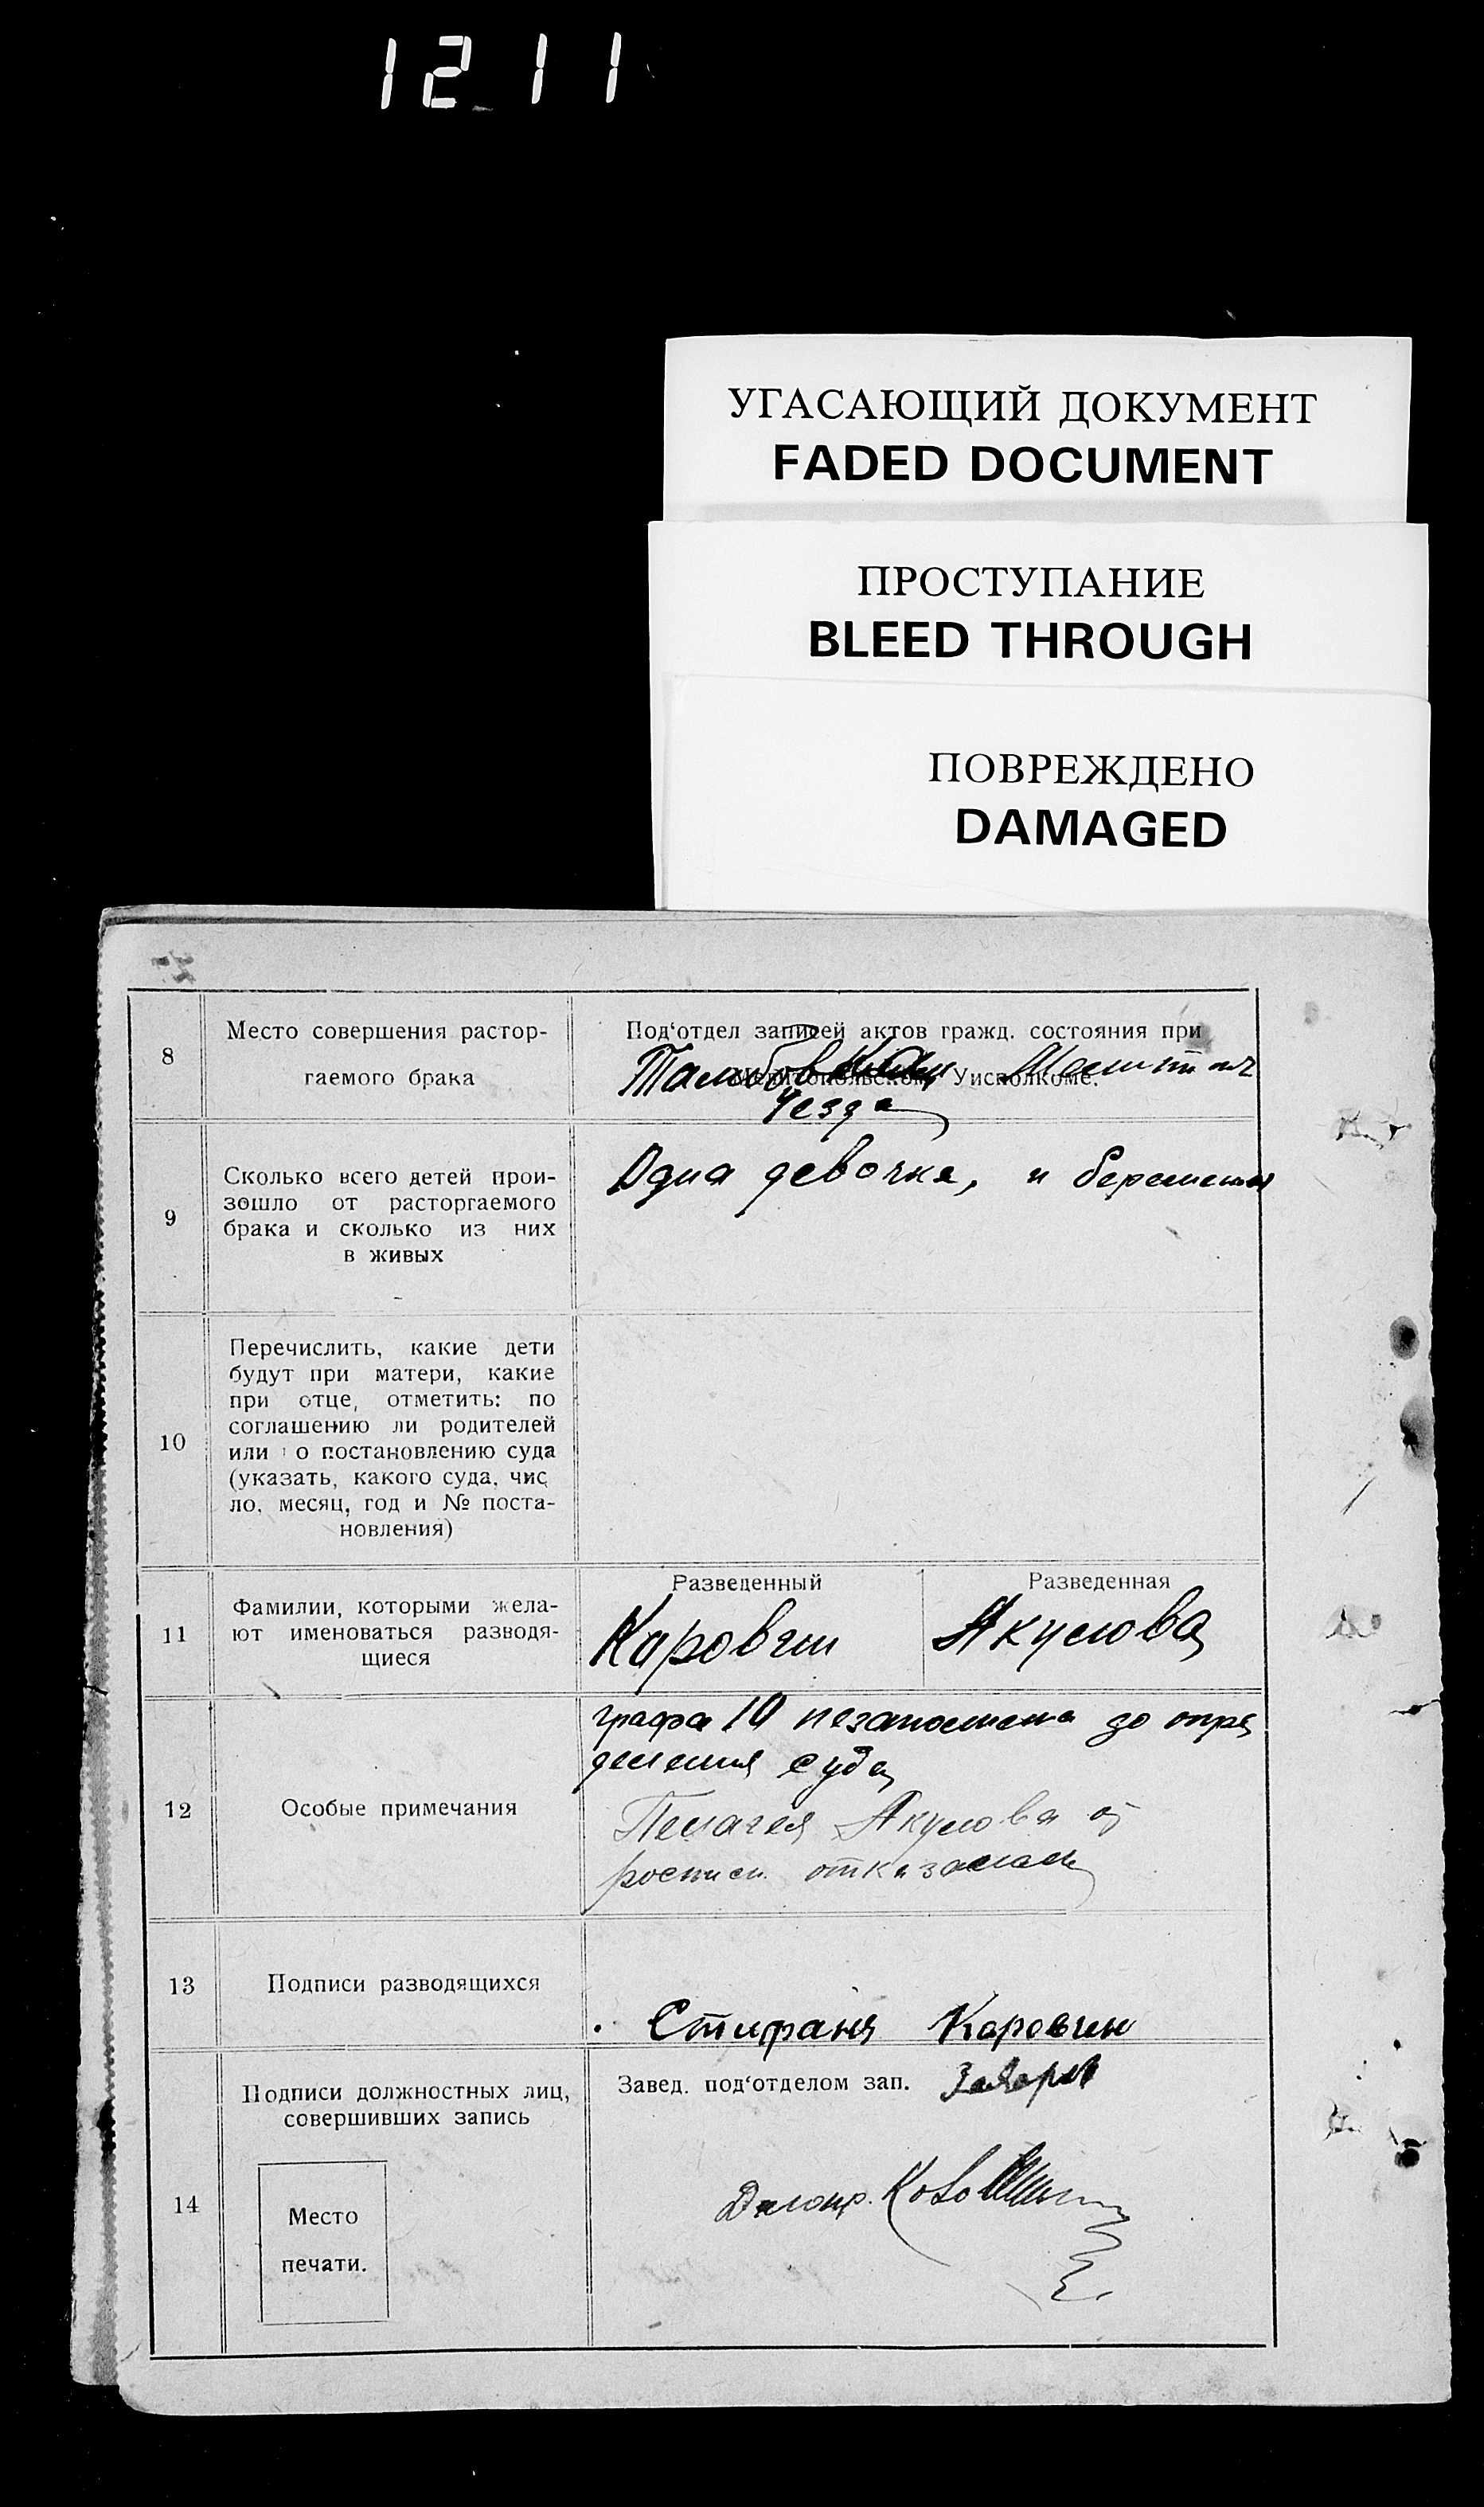 12 11
УГАСАЮЩИЙ ДОКУМЕНТ
FADED DOCUMENT
ПРОСТУПАНИЕ
BLEED THROUGH
ПОВРЕЖДЕНО
DAMAGED
8
Место совершения растор-
гаемого брака
Под‘отдел записей актов гражд. состояния при
Мелитопольском Уисполкоме.
Уезда
9
Сколько всего детей прои-
зошло от расторгаемого
брака и сколько из них
в живых
Одна девочка, и беременна
10
Перечислить, какие дети
будут при матери, какие
при отце, отметить: по
соглашению ли родителей
или о постановлению суда
(указать, какого суда, чис
ло, месяц, год и № поста-
новления)
11
Фамилии, которыми жела-
ют именоваться разводя-
щиеся
Разведенный
Каровчин
Разведенная
Акулова
12
Особые примечания
графа 10 незаполнена до опре
деления суда
Пелагея Акулова от
росписи отказалась
13
Подписи разводящихся
Стифаня Каровчин
14
Подписи должностных лиц,
совершивших запись
Место
печати.
Завед. под‘отделом зап.